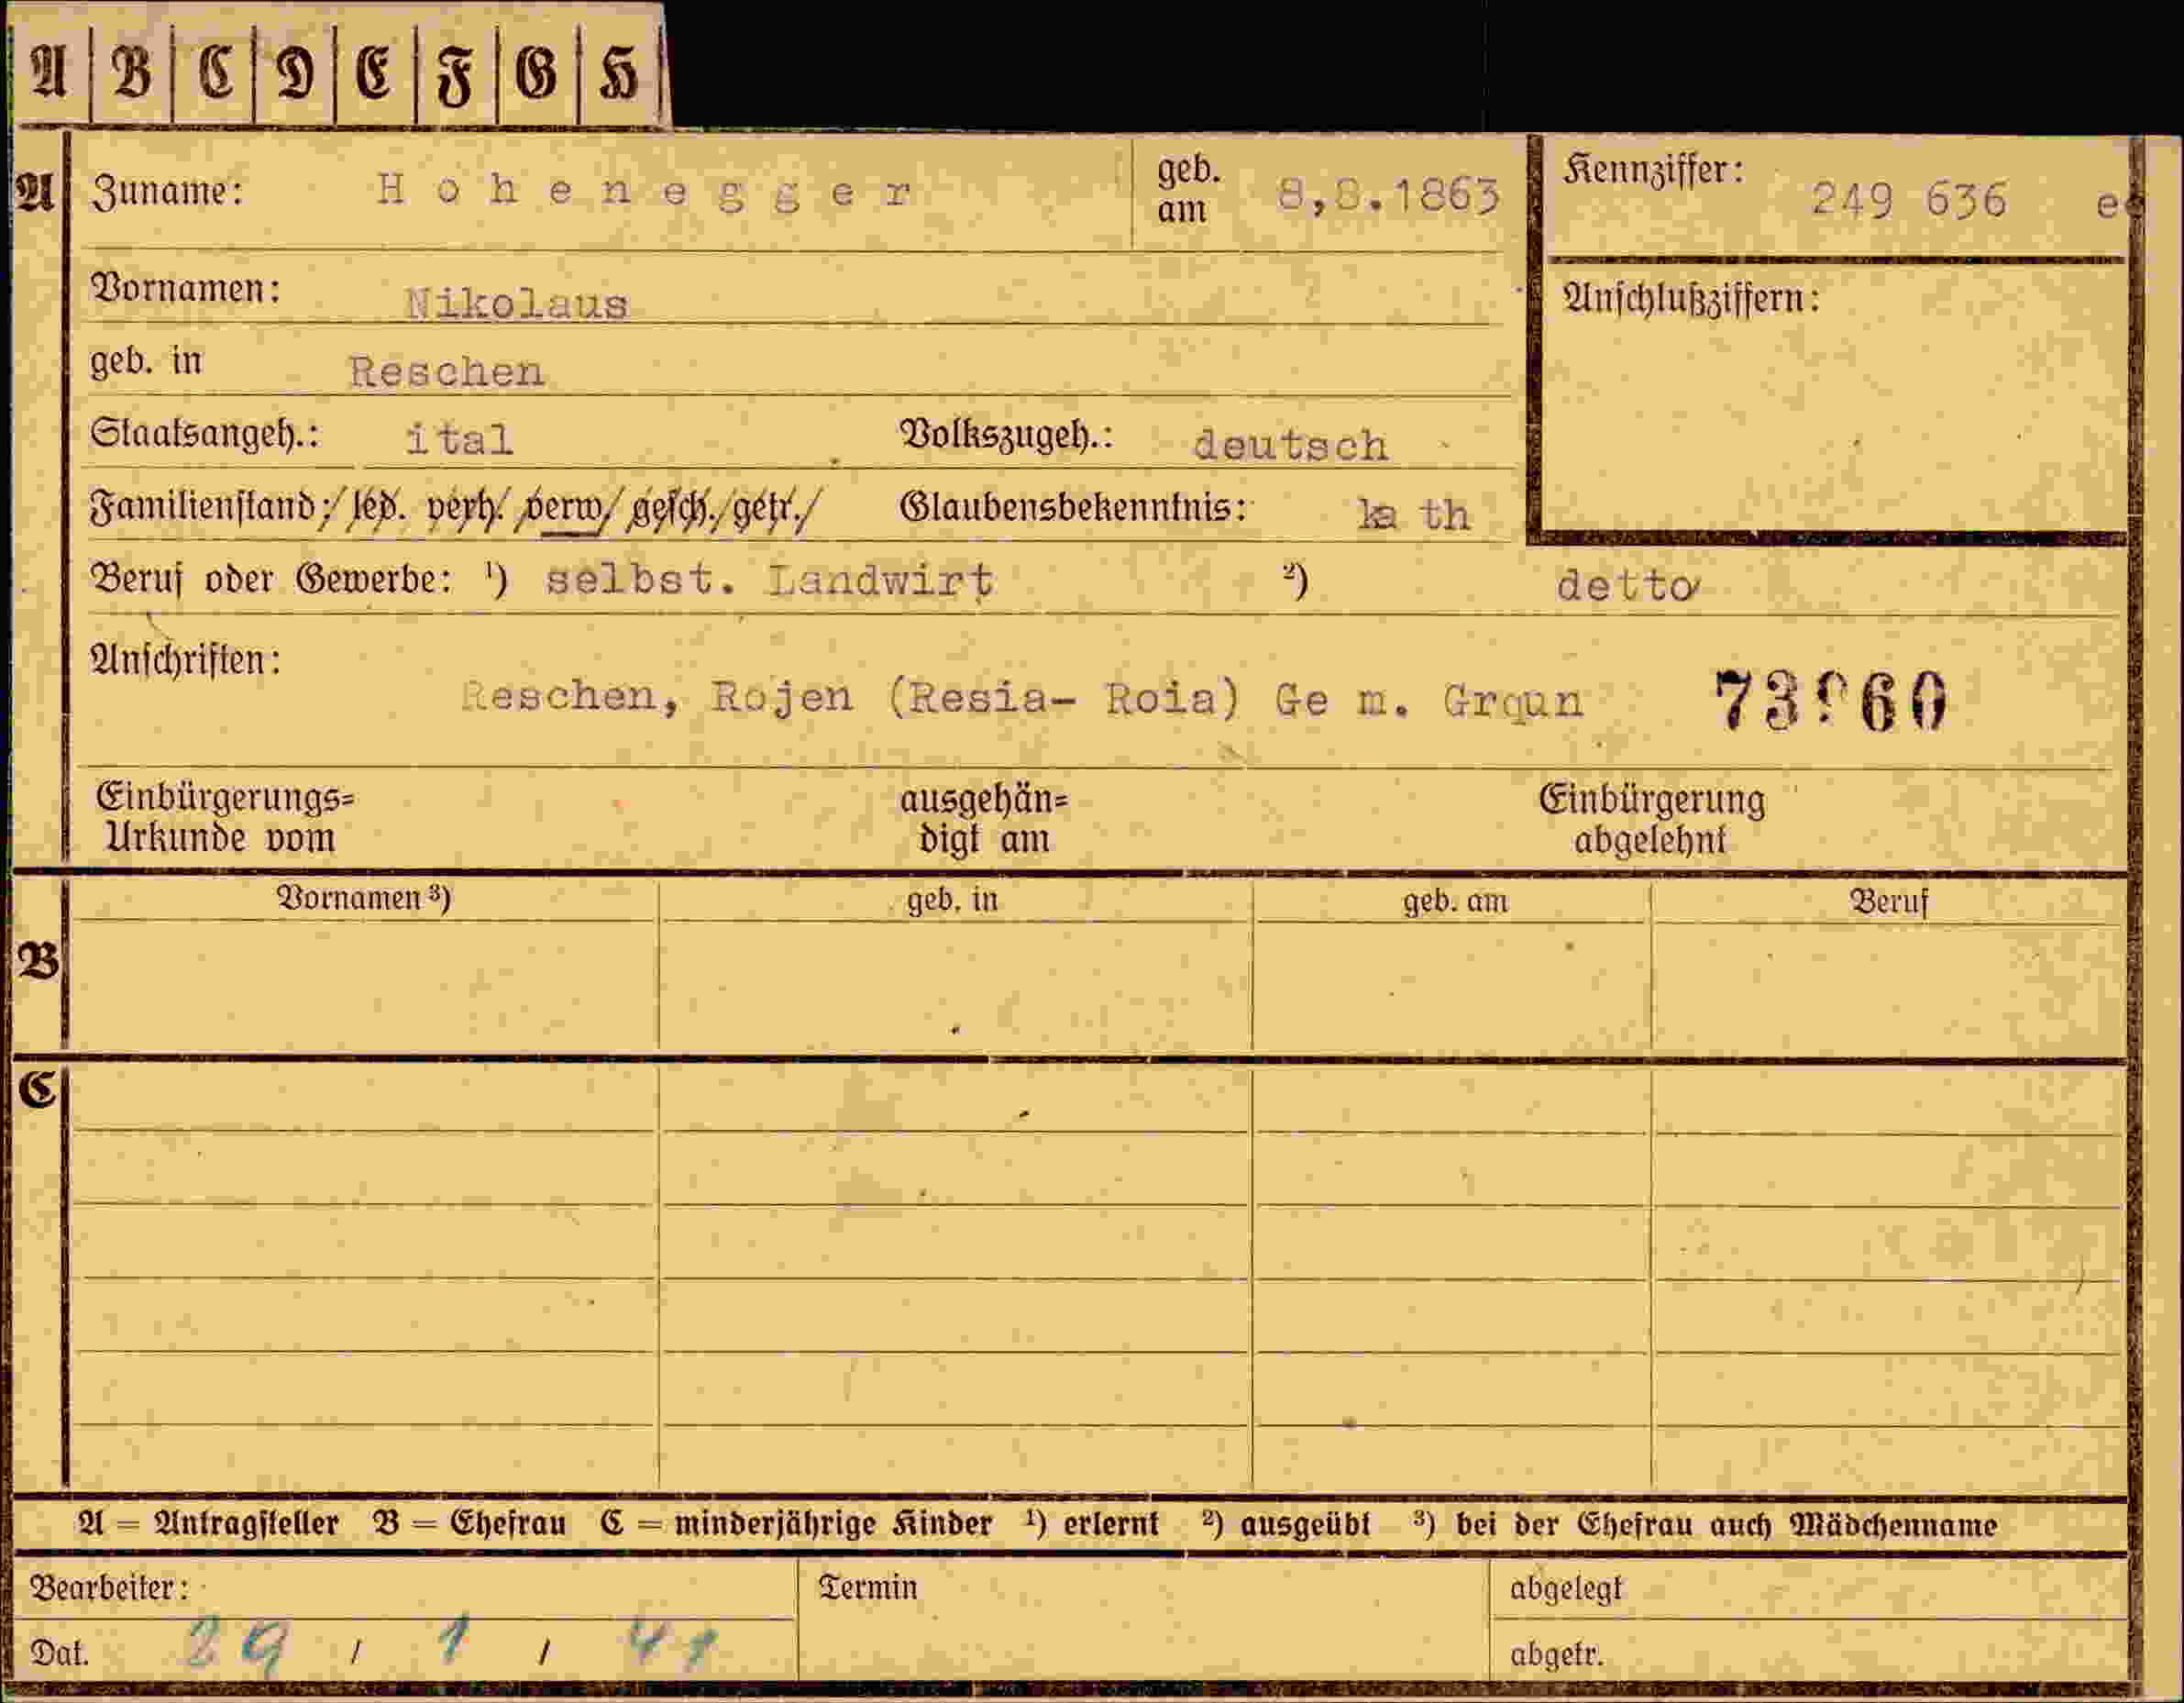 A B C D E F G H
A Zuname: Hohenegger geb. am 8,8.1863 Kennziffer: 249 636
Vornamen: Nikolaus Anschlußziffern:
geb. in Reschen
Staatsangeh.: ital Volkszugeh.: deutsch
Familienstand: led. verh. verw. gesch. getr. Glaubensbekenntnis: ka th
Beruf oder Gewerbe: ¹) selbst. Landwirt ²) detto
Anschriften:
Reschen, Rojen (Resia- Roia) Ge m. Grqun
Einbürgerungs=
Urkunde vom
ausgehän=
digt am
Einbürgerung
abgelehnt
Vornamen ³) geb. in geb. am Beruf
B
C
A = Antragsteller B = Ehefrau C = minderjährige Kinder ¹) erlernt ²) ausgeübt ³) bei der Ehefrau auch Mädchenname
Bearbeiter: Termin abgelegt
Dat. 29 / 1 / 41 abgetr.